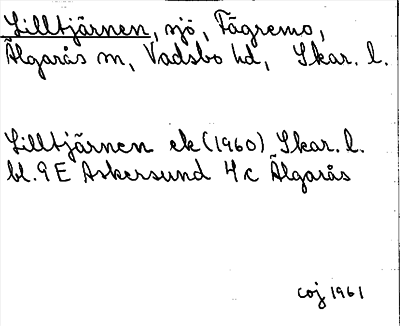 Lilltjärnen, sjö, Fägremo,
Älgarås sn, Vadsbo hd, Skar. l.
Lilltjärnen ek (1960) Skar. l.
bl. 9 E Askersund 4 c Älgarås
coj 1961